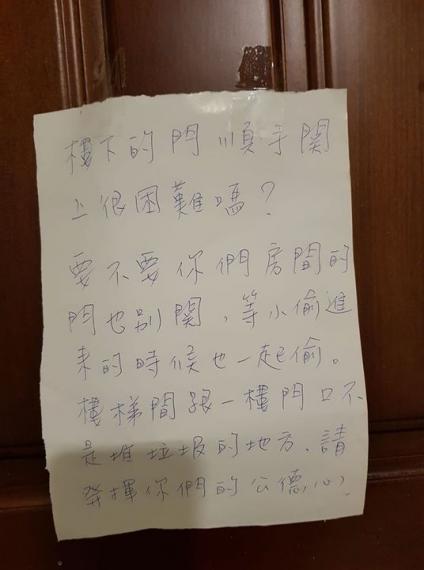 樓下的門順手関
上很困難嗎？
要不要你們房間的
門也別関，等小偷進
來的時候也一起偷。
樓梯間跟一樓門口不
是堆垃圾的地方、請
發揮你們的公德心。